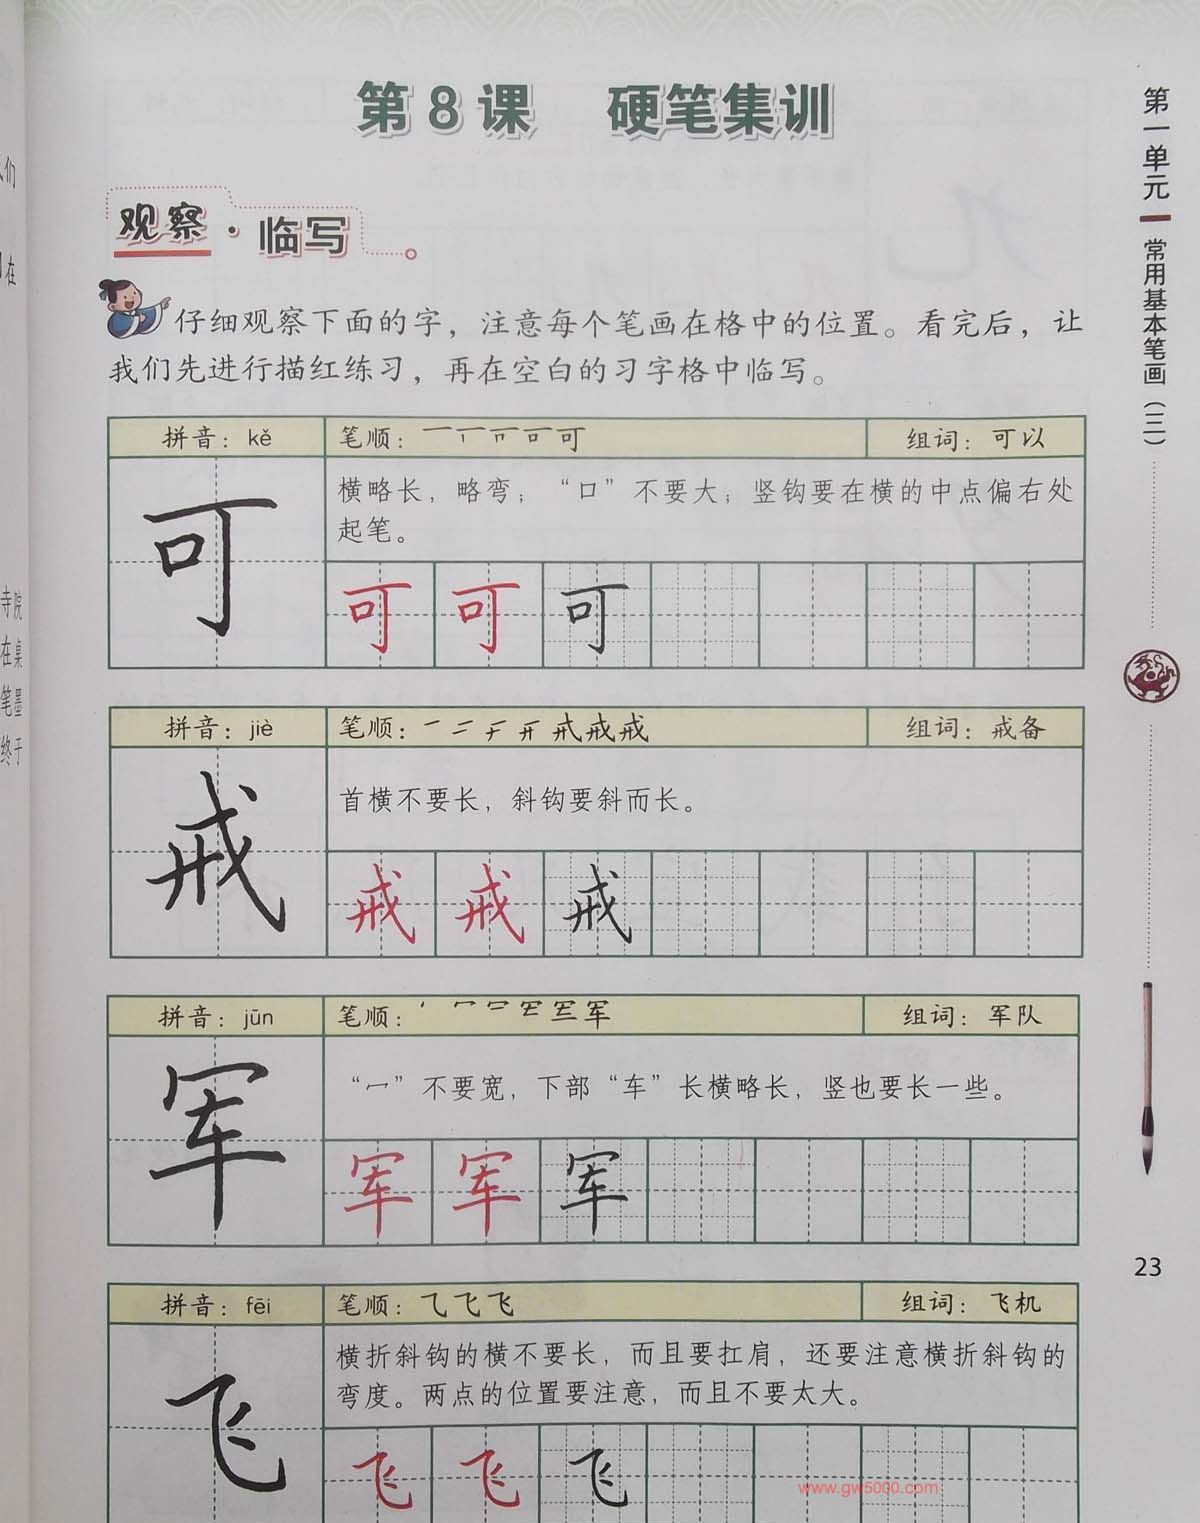 第8课 硬笔集训
观察·临写
仔细观察下面的字，注意每个笔画在格中的位置。看完后，让
我们先进行描红练习，再在空白的习字格中临写。
拼音：kě 笔顺： 组词：可以
可
横略长，略弯；“口”不要大；竖钩要在横的中点偏右处
起笔。
可 可 可
拼音：jiè 笔顺： 组词：戒备
戒
首横不要长，斜钩要斜而长。
戒 戒 戒
拼音：jūn 笔顺： 组词：军队
军
“冖”不要宽，下部“车”长横略长，竖也要长一些。
军 军 军
拼音：fēi 笔顺： 组词：飞机
飞
横折斜钩的横不要长，而且要扛肩，还要注意横折斜钩的
弯度。两点的位置要注意，而且不要太大。
飞 飞 飞
第一单元 常用基本笔画（二）
23
们
在
寺院
在桌
笔墨
终于
www.gw5000.com